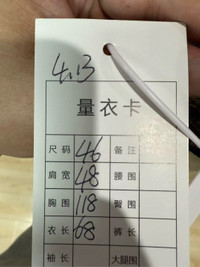 4.13
量衣卡
尺码 46 备注
肩宽 48 腰围
胸围 118 臀围
衣长 68 裤长
袖长 大腿围